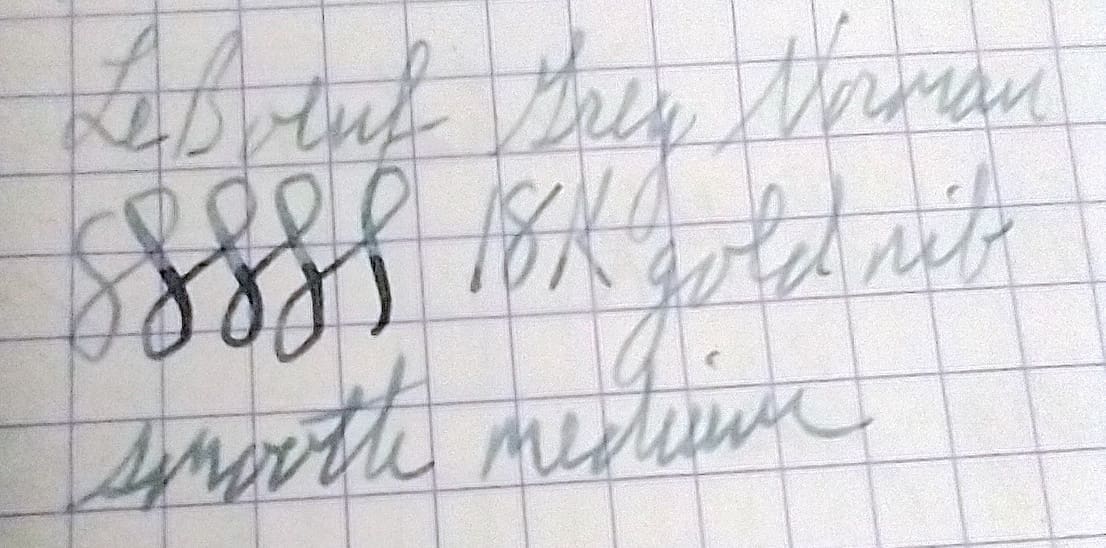 LeBoeuf Grey Norman
8888 18K gold nib
smooth medium